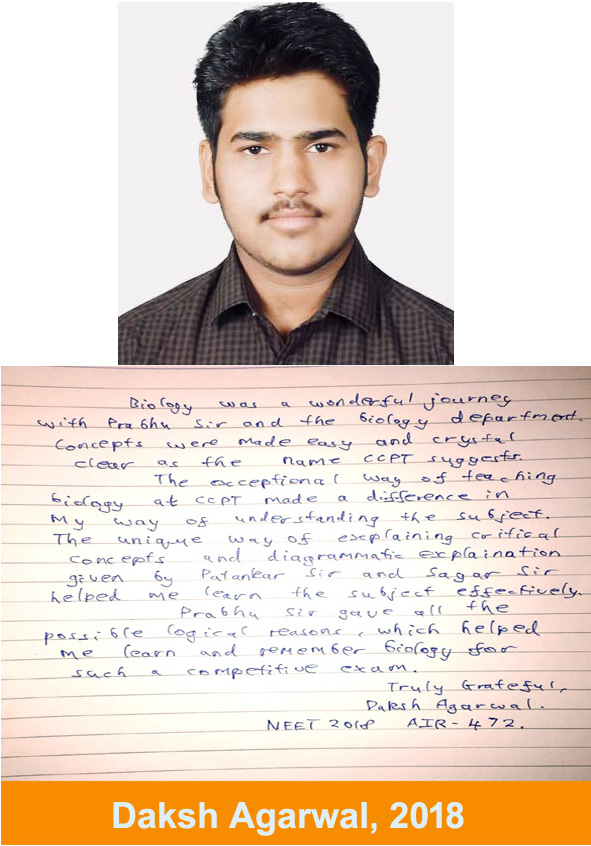 Biology was a wonderful journey
with Prabhu Sir and the biology department.
Concepts were made easy and crystal
clear as the name CCPT suggests.
The exceptional way of teaching
biology at CCPT made a difference in
My way of understanding the subject.
The unique way of explaining critical
concepts and diagrammatic explaination
given by Patankar Sir and Sagar Sir
helped me learn the subject effectively.
Prabhu Sir gave all the
possible logical reasons, which helped
me learn and remember biology for
such a competitive exam.
Truly Grateful,
Daksh Agarwal.
NEET 2018 AIR-472.
Daksh Agarwal, 2018